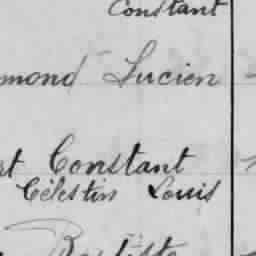 Constant
mond Lucien
rt Constant
Célestin Louis
Baptiste